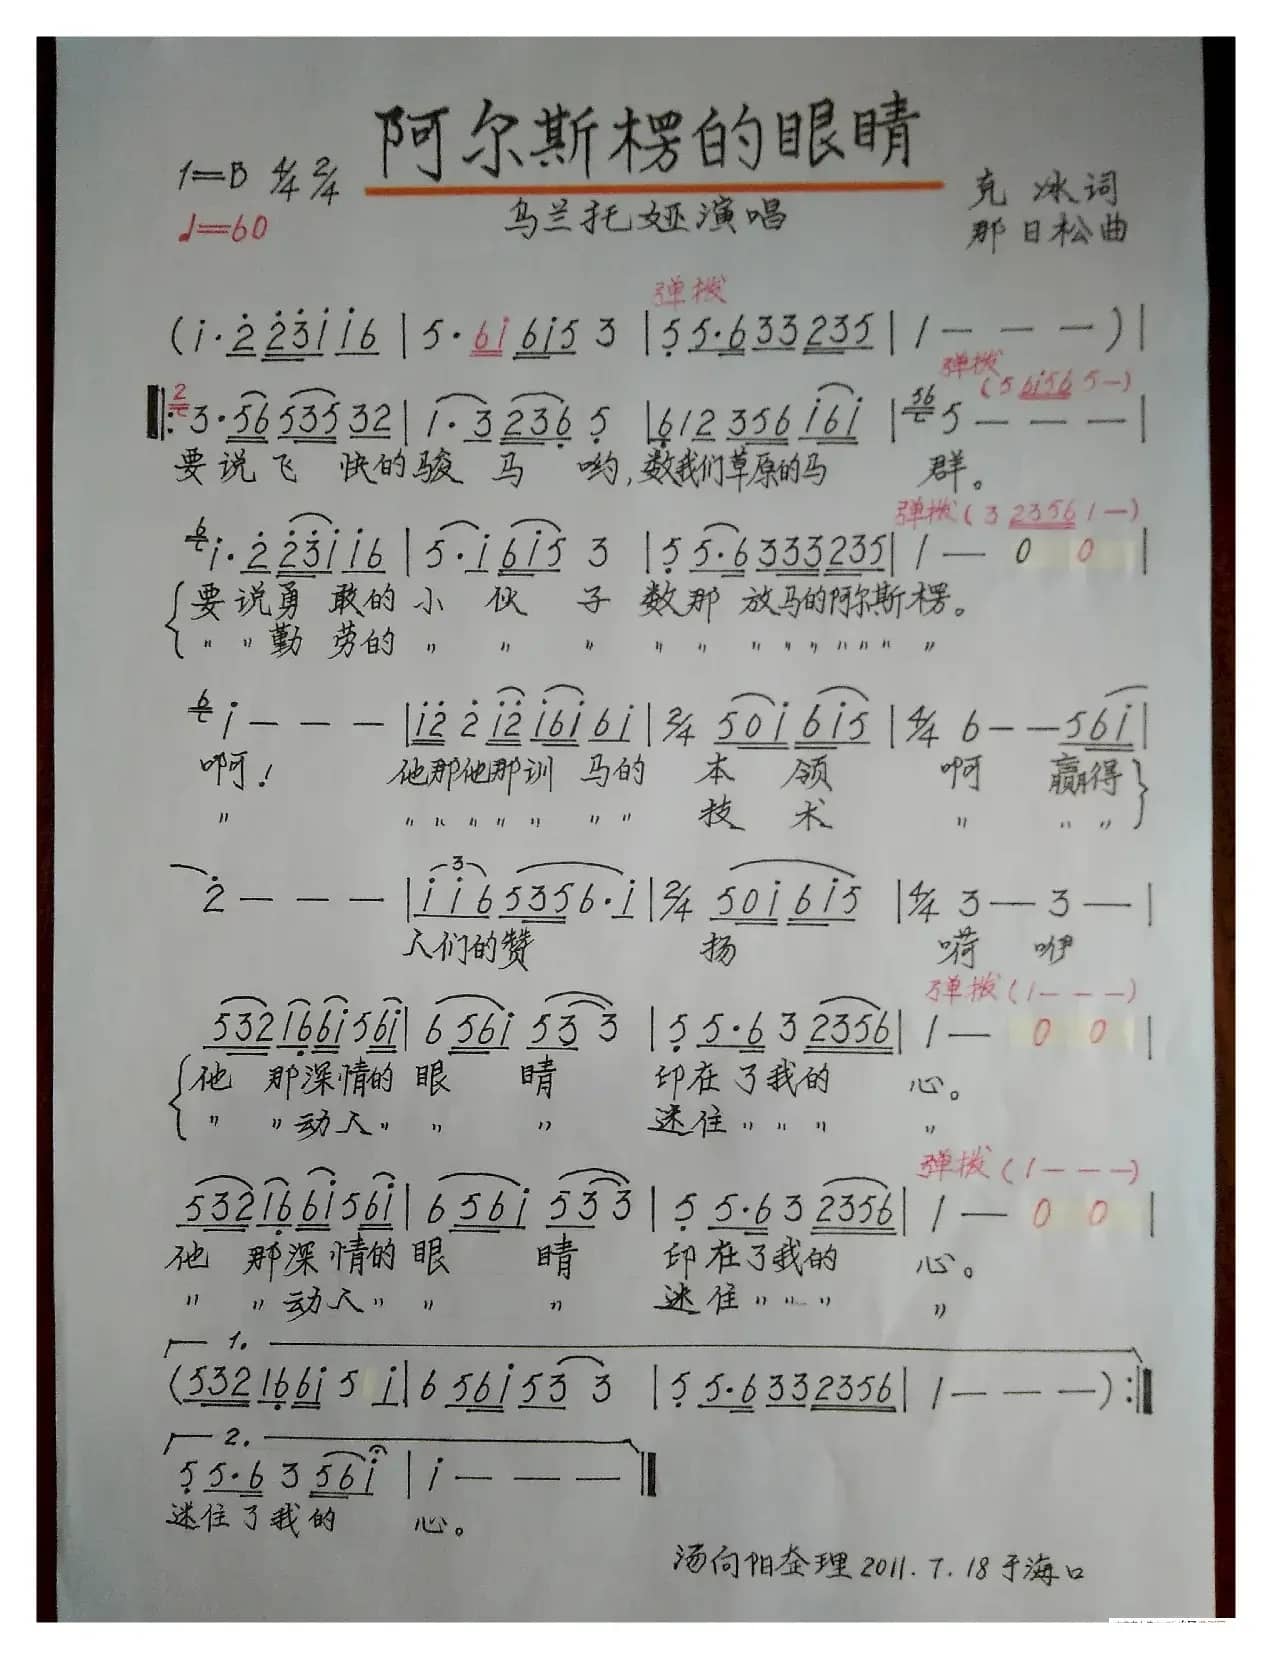 阿尔斯楞的眼睛
1=B 4/4 2/4
♩=60
乌兰托娅演唱
克 冰词
那日松曲
弹拨
(i·2 231 i6 | 5·6i 6i5 3 | 5 5·6 33 235 | 1 — — — ) |
弹拨
(5 6i56 5 —)
3·56 535 32 | 1·3 236 5 | 612 356 i6i | 5 — — — |
要说飞 快的骏 马 哟,数我们草原的马 群。
弹拨(3 2356 1 —)
i·2 231 i6 | 5·i 6i5 3 | 5 5·6 333 235 | 1 — 0 0 |
要说勇 敢的 小 伙 子 数那 放马的阿尔斯楞。
" " 勤 劳的 " " " " " " " " " " " "
i — — — | i2 2 i2 i6i 6i | 2/4 50i 6i5 | 4/4 6 — — 56i |
啊! 他那他那训 马的 本 领 啊 赢得
" " " " " " " " 技 术 " " "
2 — — — | i i 6 5356·i | 2/4 50i 6i5 | 4/4 3 — 3 — |
人们的赞 扬 嗬 咿
弹拨(1 — — —)
532 16 6i 56i | 6 56i 53 3 | 5 5·6 3 2356 | 1 — 0 0 |
他 那深情的 眼 睛 印在了我的 心。
" " 动人 " " " 迷住 " " " "
弹拨(1 — — —)
532 16 6i 56i | 6 56i 533 | 5 5·6 3 2356 | 1 — 0 0 |
他 那深情的 眼 睛 印在了我的 心。
" " 动人 " " " 迷住 " " " "
1.
(532 16 6i 5 i | 6 56i 53 3 | 5 5·6 33 2356 | 1 — — — ) :
2.
5 5·6 3 56i | i — — —
迷住了我的 心。
汤向阳荃理2011.7.18于海口